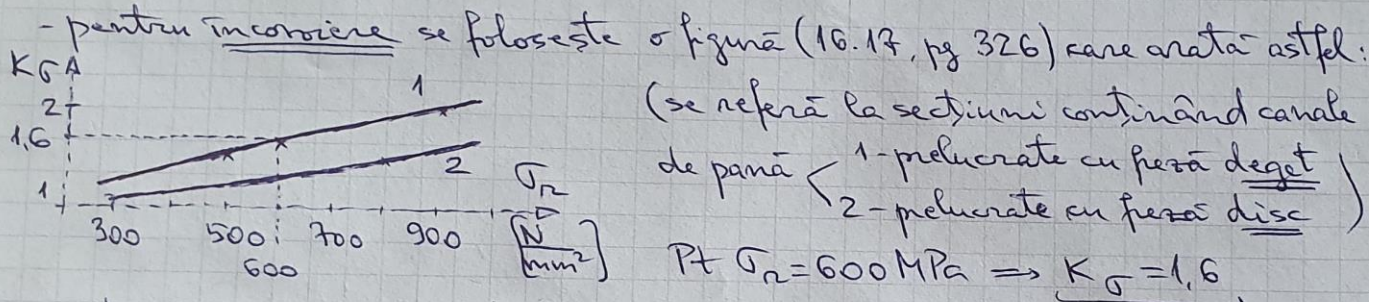 - pentru încovoiere se folosește o figură (16.17, pg 326) care arată astfel:
Kσ
2
1
1,6
1
2
σr
[N/mm²]
300 500 700 900
600
(se referă la secțiuni conținând canale
de pană < 1-prelucrate cu freză deget
2-prelucrate cu freză disc )
Pt σr=600MPa ⇒ Kσ=1,6